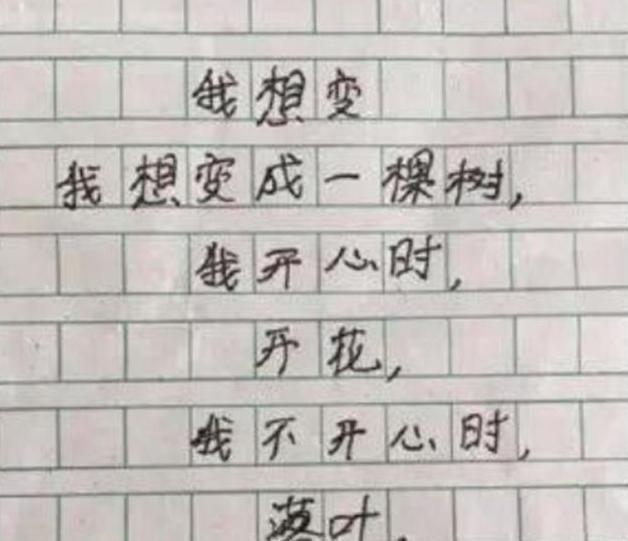 我想变
我想变成一棵树,
我开心时,
开花,
我不开心时,
落叶.